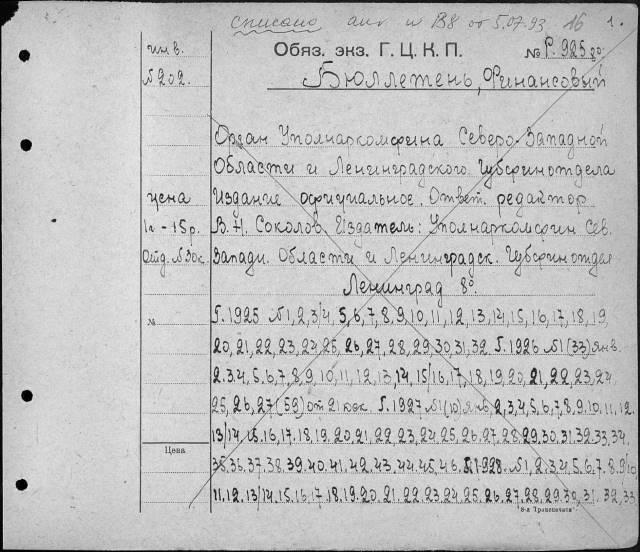 списано акт № 138 от 5.07.93 16 1.
инв. Обяз. экз. Г.Ц.К.П. № Р. 925 8º
№202. Бюллетень, Финансовый
Орган Уполнаркомфина Северо-Западной
Области и Ленинградского Губфинотдела
цена Издание официальное. Ответ. редактор
1г-15р. В.Н. Соколов. Издатель: Уполнаркомфин Сев.
Отд. №30к. Западн. Области и Ленинградск. Губфинотдел
Ленинград 8º.
№ Г. 1925 №1,2,3/4,5,6,7,8,9,10,11,12,13,14,15,16,17,18,19
20,21,22,23,24,25,26,27,28,29,30,31,32 Г. 1926 №1(33) янв.
2.3.4,5,6,7,8,9,10,11,12,13,14,15/16,17,18,19,20,21,22,23,24
25,26,27(59) от 21 дек. Г. 1927 №1(10) янв 2,3,4,5,6,7,8,9,10,11,12.
13/14,15.16,17,18.19.20.21,22,23,24,25,26,27,28,29.30.31.32.33.34.
Цена
35.36.37.38.39.40.41.42.43.44.45.46. Г. 1928. №1,2,3,4,5,6,7,8,9/10
11,12.13/14.15.16.17.18.19.20.21.22.23.24.25.26.27.28.29.30,31.32,33
8-я Гроностипог.